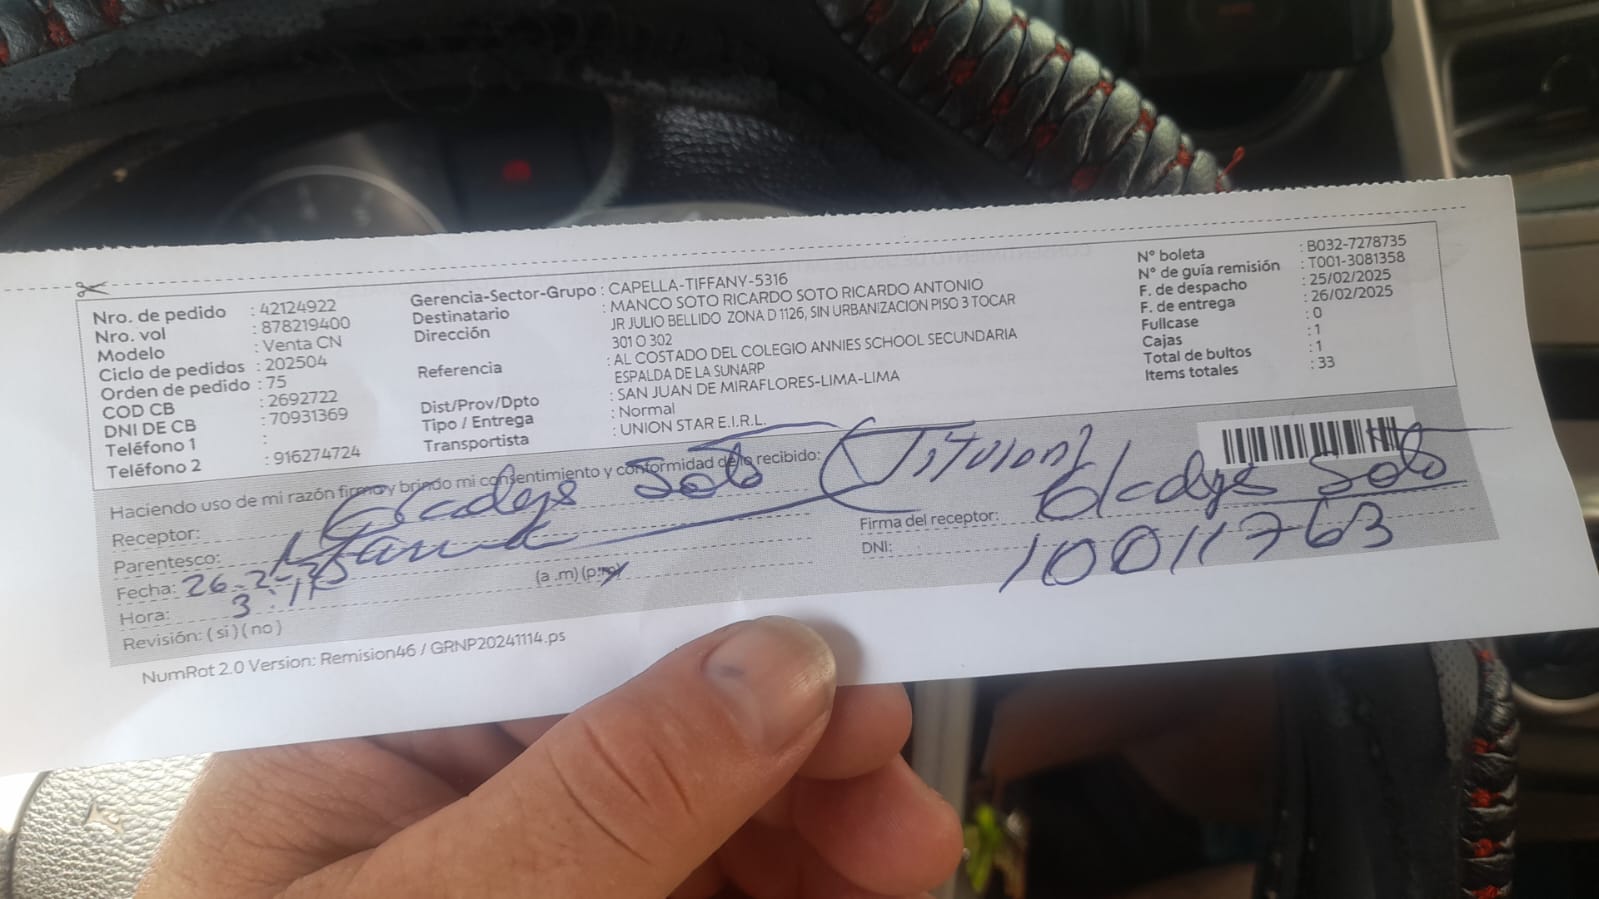 Nro. de pedido : 42124922
Nro. vol : 878219400
Modelo : Venta CN
Ciclo de pedidos : 202504
Orden de pedido : 75
COD CB : 2692722
DNI DE CB : 70931369
Teléfono 1 :
Teléfono 2 : 916274724
Gerencia-Sector-Grupo : CAPELLA-TIFFANY-5316
Destinatario : MANCO SOTO RICARDO SOTO RICARDO ANTONIO
Dirección JR JULIO BELLIDO ZONA D 1126, SIN URBANIZACION PISO 3 TOCAR
301 O 302
Referencia : AL COSTADO DEL COLEGIO ANNIES SCHOOL SECUNDARIA
ESPALDA DE LA SUNARP
Dist/Prov/Dpto : SAN JUAN DE MIRAFLORES-LIMA-LIMA
Tipo / Entrega : Normal
Transportista : UNION STAR E.I.R.L.
N° boleta : B032-7278735
N° de guía remisión : T001-3081358
F. de despacho : 25/02/2025
F. de entrega : 26/02/2025
Fullcase : 0
Cajas : 1
Total de bultos : 1
Items totales : 33
Haciendo uso de mi razón firmo y brindo mi consentimiento y conformidad de lo recibido:
Receptor: Gladys Soto
Parentesco: Mamá
Fecha: 26-2-25
Hora: 3:15 (a .m) (p.m)
Revisión: ( si ) ( no )
Firma del receptor: Gladys Soto
DNI: 10011763
NumRot 2.0 Version: Remision46 / GRNP20241114.ps